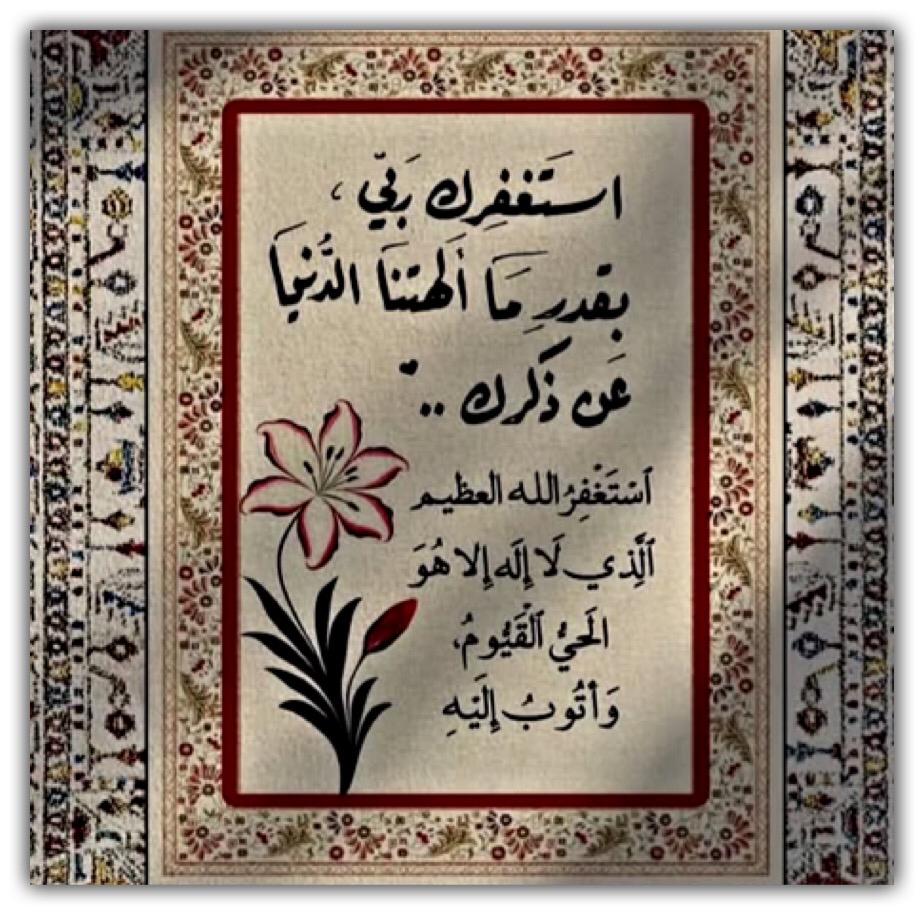 استغفرك رَبيّ ،
بقدرِ مَا ألهتنَا الدُّنيَا
عَن ذكرك ..
ٱسْتَغْفِرُ الله العظيم
ٱلَّذِي لَا إِلَه إِلا هُوَ
الَحيُّ ٱلْقَيُّومُ،
وَأتُوبُ إِلَيْهِ